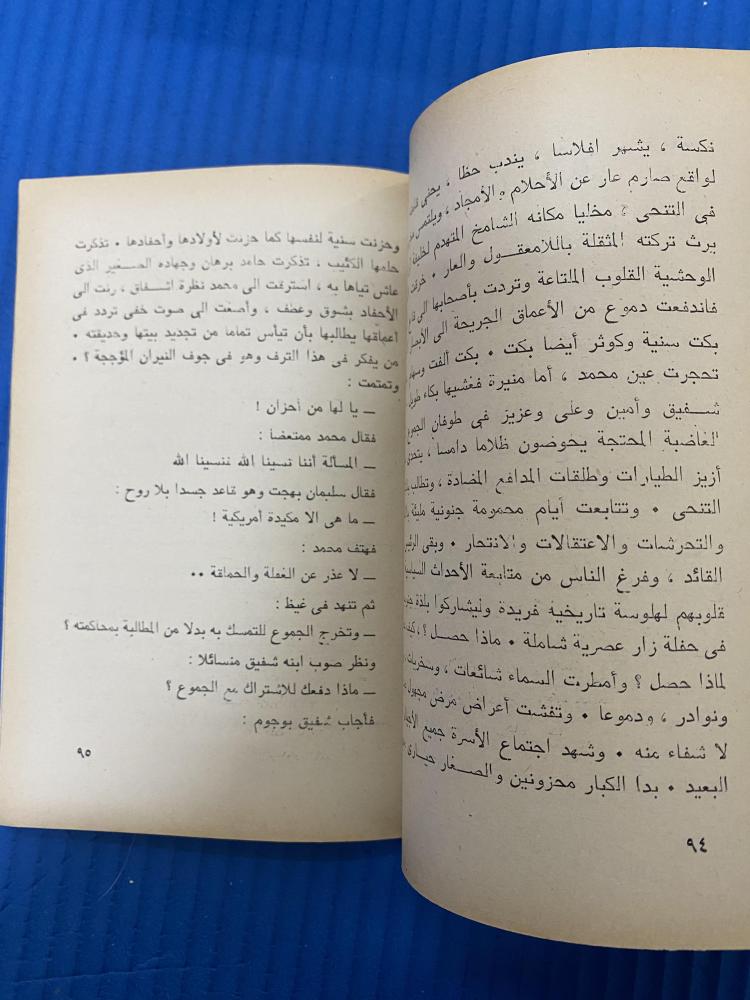 نكسة ، يشهر افلاسا ، يندب حظا ، يحنى
لواقع صارم عار عن الأحلام والأمجاد ، ويلتمس
فى التنحى ، مخليا مكانه الشامخ المتهدم
يرث تركته المثقلة باللامعقول والعار .
الوحشية القلوب الملتاعة وتردت بأصحابها الى
فاندفعت دموع من الأعماق الجريحة الى
بكت سنية وكوثر أيضا بكت . بكت ألفت
تحجرت عين محمد ، أما منيرة فغشيها بكاء طويل
شفيق وأمين وعلى وعزيز فى طوفان الجموع
الغاضبة المحتجة يخوضون ظلاما دامسا ، يتحدى
أزيز الطيارات وطلقات المدافع المضادة ، وتطالب
التنحى . وتتابعت أيام محمومة جنونية مليئة
والتحرشات والاعتقالات والانتحار . وبقى
القائد ، وفرغ الناس من متابعة الأحداث
قلوبهم لهلوسة تاريخية فريدة وليشاركوا بلذة
فى حفلة زار عصرية شاملة . ماذا حصل ؟ ،
لماذا حصل ؟ وأمطرت السماء شائعات ، وسخريات ،
ونوادر ، ودموعا . وتفشت أعراض مرض مجهول
لا شفاء منه . وشهد اجتماع الأسرة جميع
البعيد . بدا الكبار محزونين والصغار حيارى
٩٤
وحزنت سنية لنفسها كما حزنت لأولادها وأحفادها . تذكرت
حلمها الكئيب ، تذكرت حامد برهان وجهاده الصغير الذى
عاش تياها به ، استرقت الى محمد نظرة اشفاق ، رنت الى
الأحفاد بشوق وعطف ، وأصغت الى صوت خفى تردد فى
أعماقها يطالبها بأن تيأس تماما من تجديد بيتها وحديقته .
من يفكر فى هذا الترف وهو فى جوف النيران المؤججة ؟ .
وتمتمت :
ــ يا لها من أحزان !
فقال محمد ممتعضا :
ــ المسألة أننا نسينا الله فنسينا الله
فقال سليمان بهجت وهو قاعد جسدا بلا روح :
ــ ما هى الا مكيدة أمريكية !
فهتف محمد :
ــ لا عذر عن الغفلة والحماقة ..
ثم تنهد فى غيظ :
ــ وتخرج الجموع للتمسك به بدلا من المطالبة بمحاكمته ؟
ونظر صوب ابنه شفيق متسائلا :
ــ ماذا دفعك للاشتراك مع الجموع ؟
فأجاب شفيق بوجوم :
٩٥